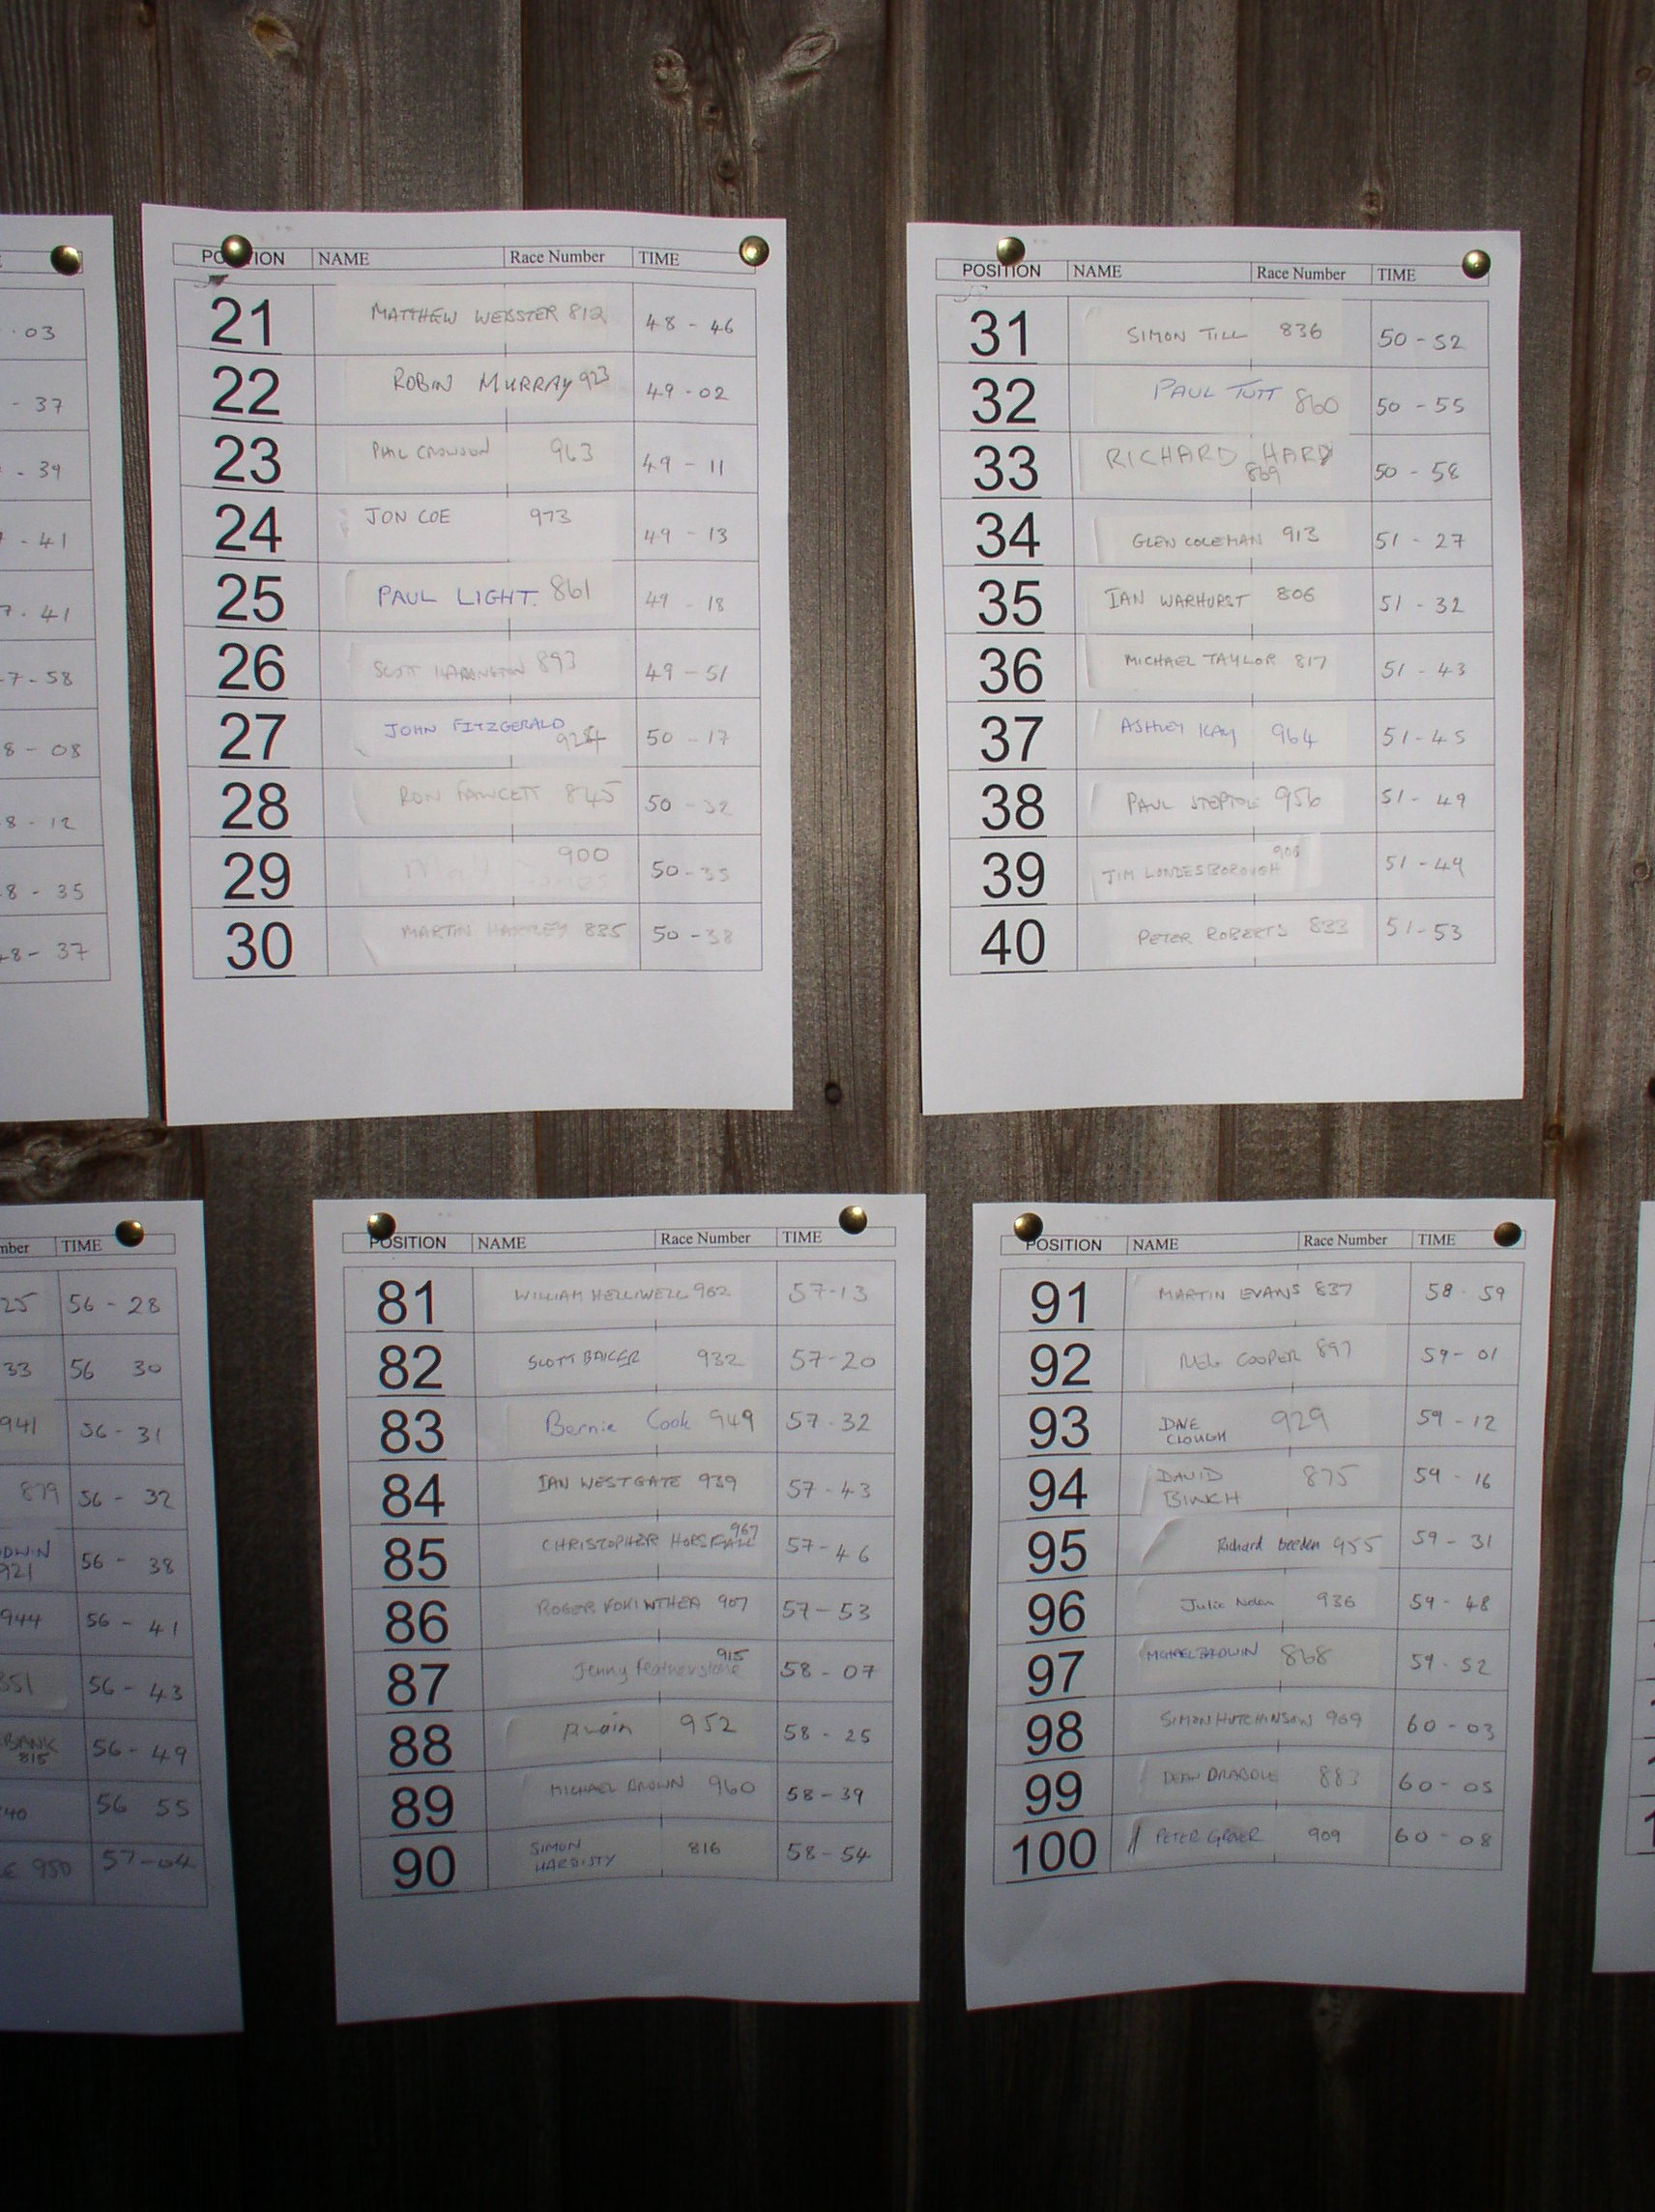 · 03
- 37
- 39
- 41
7 - 41
7 - 58
8 - 08
8 - 12
8 - 35
48 - 37
POSITION NAME Race Number TIME
21 MATTHEW WEBSTER 812 48 - 46
22 ROBIN MURRAY 923 49 - 02
23 PHIL CROWSON 963 49 - 11
24 JON COE 973 49 - 13
25 PAUL LIGHT. 861 49 - 18
26 SCOTT 893 49 - 51
27 JOHN FITZGERALD 50 - 17
28 RON FAWCETT 845 50 - 32
29 900 50 -
30 MARTIN HARTLEY 835 50 - 38
POSITION NAME Race Number TIME
31 SIMON TILL 836 50 - 52
32 PAUL TUTT 860 50 - 55
33 RICHARD HARDY 50 - 58
869
34 GLEN COLEMAN 913 51 - 27
35 IAN WARHURST 806 51 - 32
36 MICHAEL TAYLOR 817 51 - 43
37 ASHLEY KAY 964 51 - 45
38 PAUL STEPTOE 956 51 - 49
39 TIM LONDESBOROUGH 51 - 49
40 PETER ROBERTS 833 51 - 53
mber TIME
25 56 - 28
33 56 30
941 56 - 31
879 56 - 32
DWIN
921 56 - 38
944 56 - 41
851 56 - 43
BANK
815 56 - 49
40 56 55
E 950 57 - 04
POSITION NAME Race Number TIME
81 WILLIAM HELLIWELL 962 57-13
82 SCOTT BAKER 932 57-20
83 Bernie Cook 949 57-32
84 IAN WESTGATE 939 57-43
85 CHRISTOPHER HORSFALL 967 57-46
86 ROGER 907 57-53
87 Jenny Featherstone 915 58 - 07
88 952 58 - 25
89 MICHAEL BROWN 960 58 - 39
90 SIMON
HARDISTY 816 58 - 54
POSITION NAME Race Number TIME
91 MARTIN EVANS 837 58 - 59
92 COOPER 897 59 - 01
93 DAVE
CLOUGH 929 59 - 12
94 DAVID
BINCH 875 59 - 16
95 Richard beeden 955 59 - 31
96 Julie Nolan 936 59 - 48
97 868 59 - 52
98 SIMON HUTCHINSON 969 60 - 03
99 DEAN DRABBLE 883 60 - 05
100 PETER 909 60 - 08